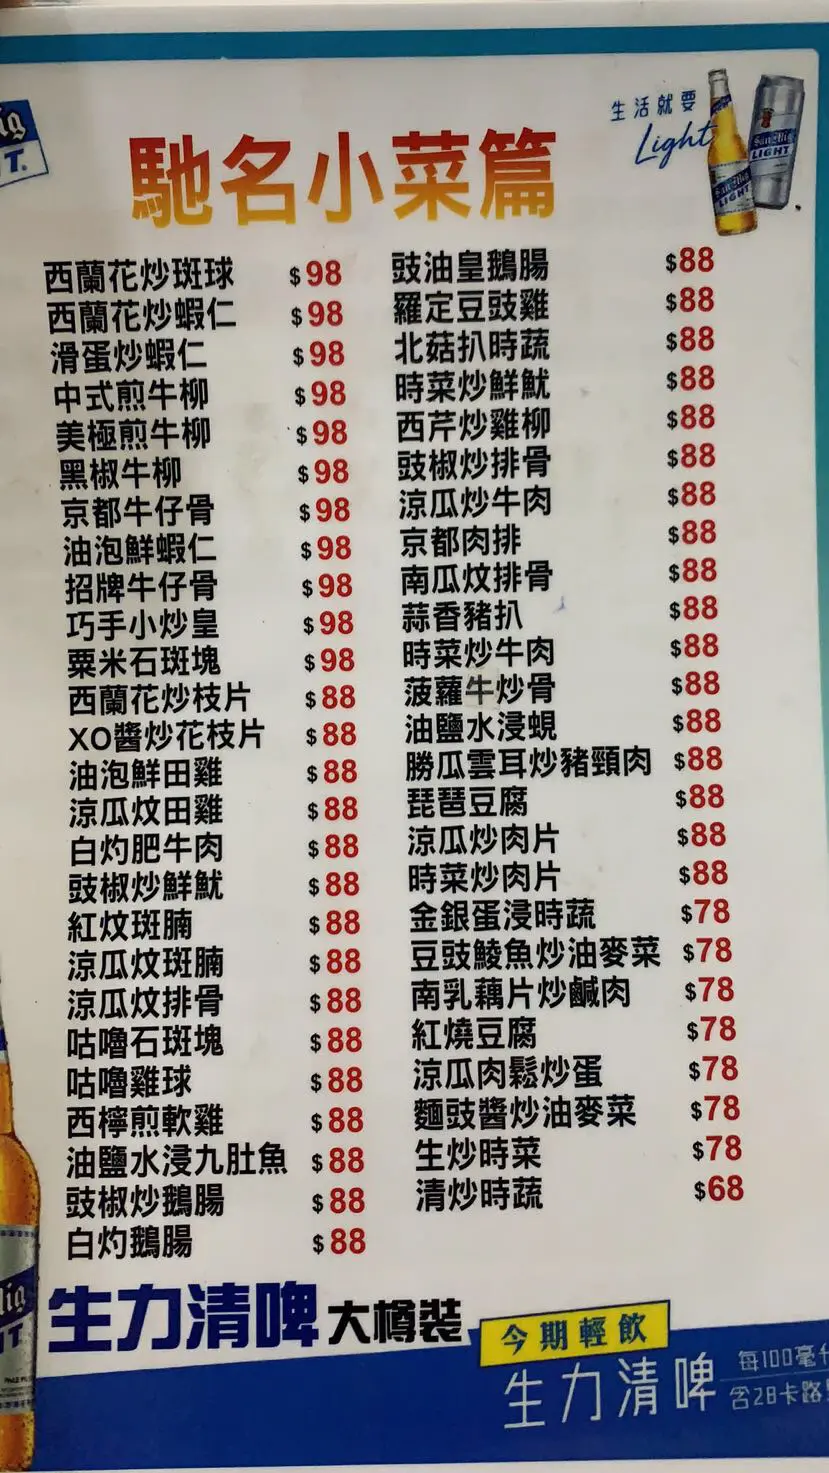 生活就要
Light
San Mig
LIGHT
San Mig
LIGHT
馳名小菜篇
西蘭花炒斑球 $98
西蘭花炒蝦仁 $98
滑蛋炒蝦仁 $98
中式煎牛柳 $98
美極煎牛柳 $98
黑椒牛柳 $98
京都牛仔骨 $98
油泡鮮蝦仁 $98
招牌牛仔骨 $98
巧手小炒皇 $98
粟米石斑塊 $98
西蘭花炒枝片 $88
XO醬炒花枝片 $88
油泡鮮田雞 $88
涼瓜炆田雞 $88
白灼肥牛肉 $88
豉椒炒鮮魷 $88
紅炆斑腩 $88
涼瓜炆斑腩 $88
涼瓜炆排骨 $88
咕嚕石斑塊 $88
咕嚕雞球 $88
西檸煎軟雞 $88
油鹽水浸九肚魚 $88
豉椒炒鵝腸 $88
白灼鵝腸 $88
豉油皇鵝腸 $88
羅定豆豉雞 $88
北菇扒時蔬 $88
時菜炒鮮魷 $88
西芹炒雞柳 $88
豉椒炒排骨 $88
涼瓜炒牛肉 $88
京都肉排 $88
南瓜炆排骨 $88
蒜香豬扒 $88
時菜炒牛肉 $88
菠蘿牛炒骨 $88
油鹽水浸蜆 $88
勝瓜雲耳炒豬頸肉 $88
琵琶豆腐 $88
涼瓜炒肉片 $88
時菜炒肉片 $88
金銀蛋浸時蔬 $78
豆豉鯪魚炒油麥菜 $78
南乳藕片炒鹹肉 $78
紅燒豆腐 $78
涼瓜肉鬆炒蛋 $78
麵豉醬炒油麥菜 $78
生炒時菜 $78
清炒時蔬 $68
生力清啤大樽裝
今期輕飲
生力清啤
每100毫
含28卡路